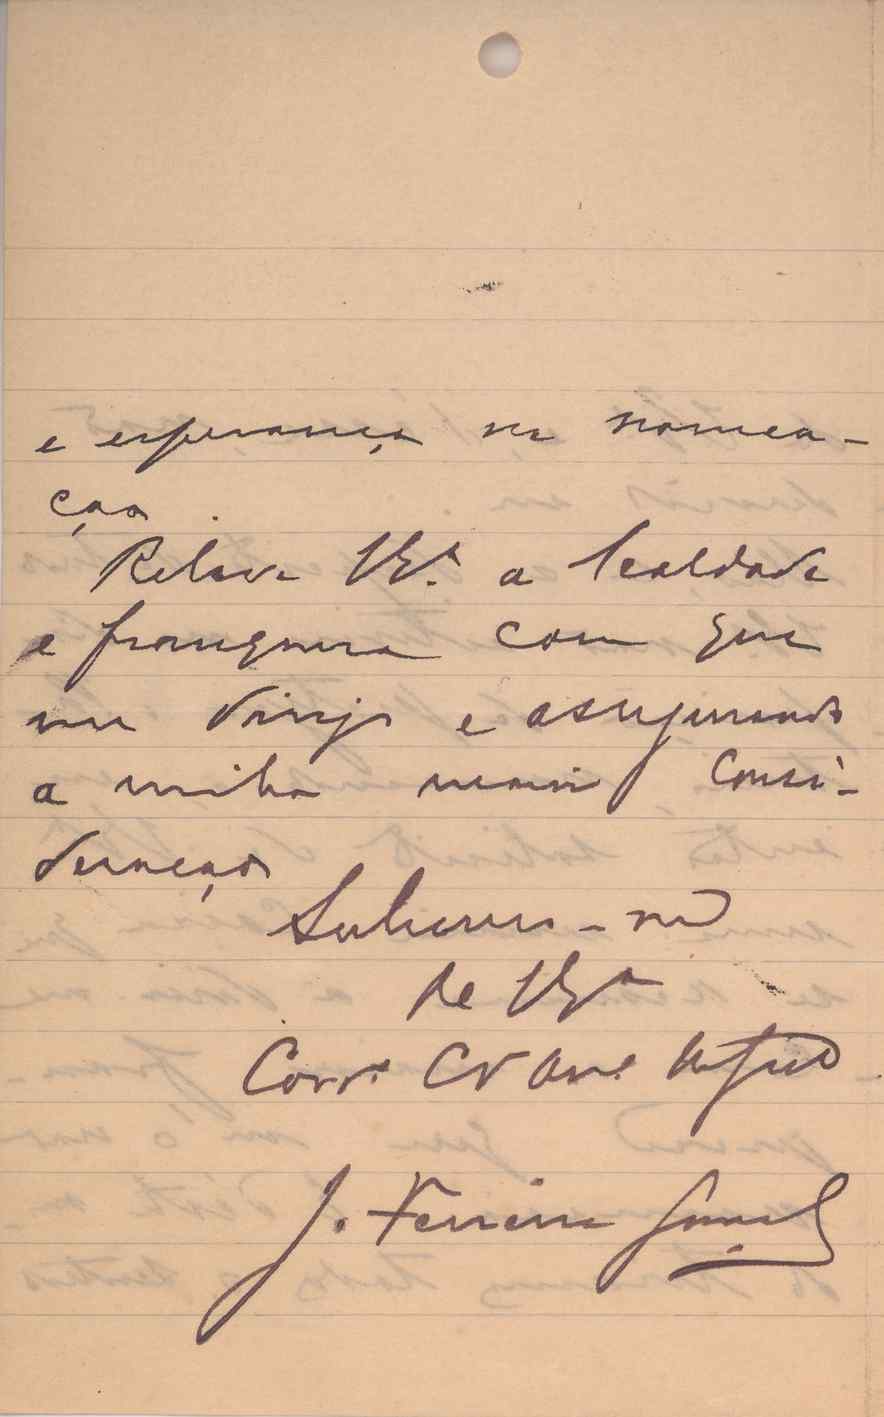 e esperança na nomea-
ção.
Releve V. Ex.ª a lealdade
e franqueza com que
me dirijo e assegurando
a minha maior consi-
deração
Subscrevo-me
De V. Ex.ª
Corr.º Cr.º
J. Ferreira Gomes